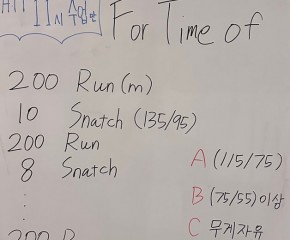 11시 수업
For Time of
200 Run (m)
10 Snatch (135/95)
200 Run
8 Snatch
A (115/75)
B (75/55) 이상
C 무게자유
200 R